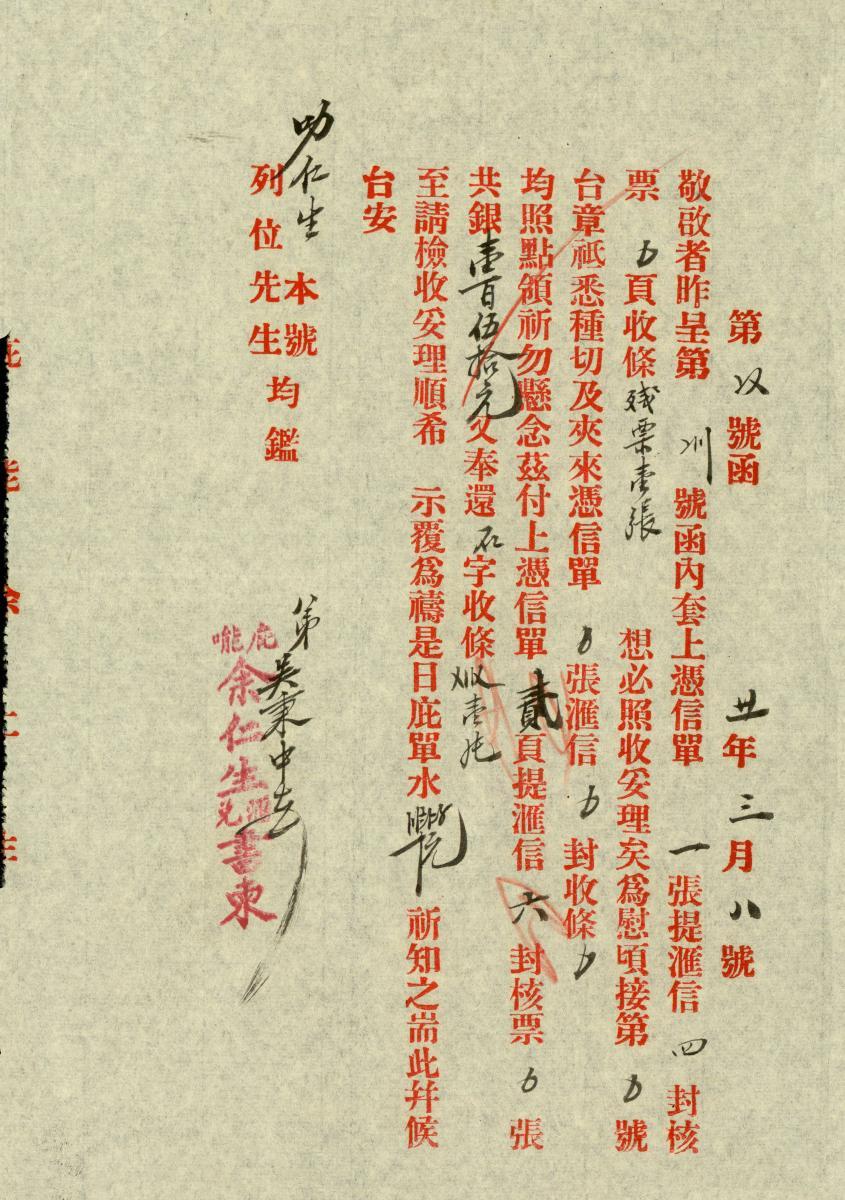 第 〢〤 號函 廿年三月八號
敬啟者昨呈第 〢〣 號函內套上憑信單 一 張提滙信 四 封核
票 〇 頁收條 殘票壹張 想必照收妥理矣爲慰頃接第 〇 號
台章祗悉種切及夾來憑信單 〇 張滙信 〇 封收條 〇
均照點領祈勿懸念茲付上憑信單 貳 頁提滙信 六 封核票 〇 張
共銀 壹百伍拾元 又奉還 石 字收條 壹
至請檢收妥理順希 示覆爲禱是日庇單水 祈知之耑此幷候
台安
叻仁生 本號
列位先生 均鑑
弟吳秉中
庇能
余仁生
滙兌
書柬